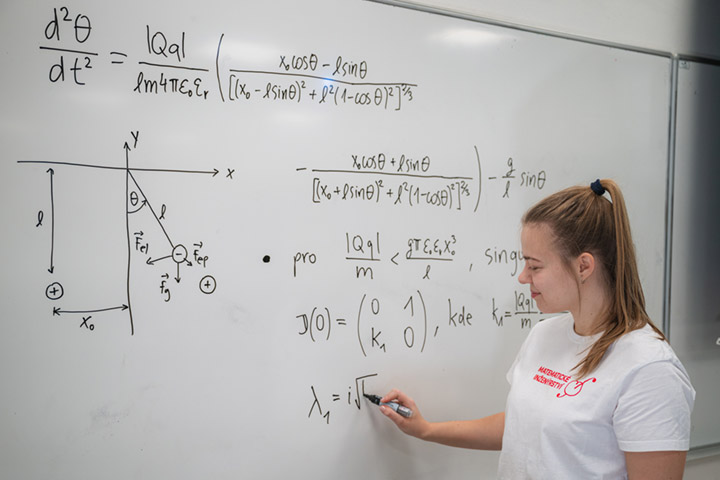 d²θ/dt² = |Qq|/(lm4πε₀εᵣ) ( (x₀cosθ − lsinθ)/[(x₀ − lsinθ)² + l²(1−cosθ)²]^2/3
− (x₀cosθ + lsinθ)/[(x₀ + lsinθ)² + l²(1−cosθ)²]^2/3 ) − g/l sinθ
y
x
θ
l
l
F⃗el
F⃗ep
F⃗g
−
+
+
x₀
• pro |Qq|/m < gπε₀εᵣx₀³/l ,
J(0) = (0 1; k₁ 0), kde k₁ = |Qq|/m
λ₁ = i√
MATEMATICKÉ
INŽENÝRSTVÍ